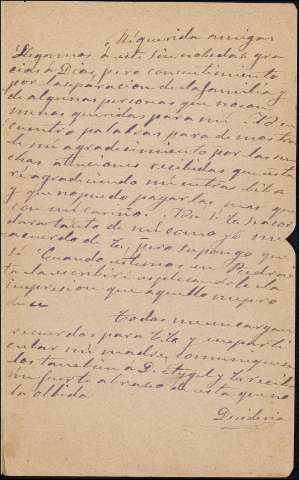 Mi querida amiga:
Llegamos a esta sin novedad, gra
cias a Dios, pero con sentimiento
por la separación de la familia y
de algunas personas que no son
menos queridas para mi. No en
cuentro palabras para demostrar
te mi agradecimiento por las mu
chas atenciones recibidas que esta
ré agradeciendo mientras viva
y que no puedo pagarlas mas que
con mi cariño. No sé si te acor
darás tanto de mi como yo me
acuerdo de ti, pero supongo que
sí. Cuando estemos en Piedra
ta la escribiré esplicandole la
impresion que aquello me pro
duce
Todas me encargan
recuerdos para tita y en parti
cular mi madre,
los también a D. Angel y tu recibe
un fuerte abrazo de esta que no
te olbida
Desideria